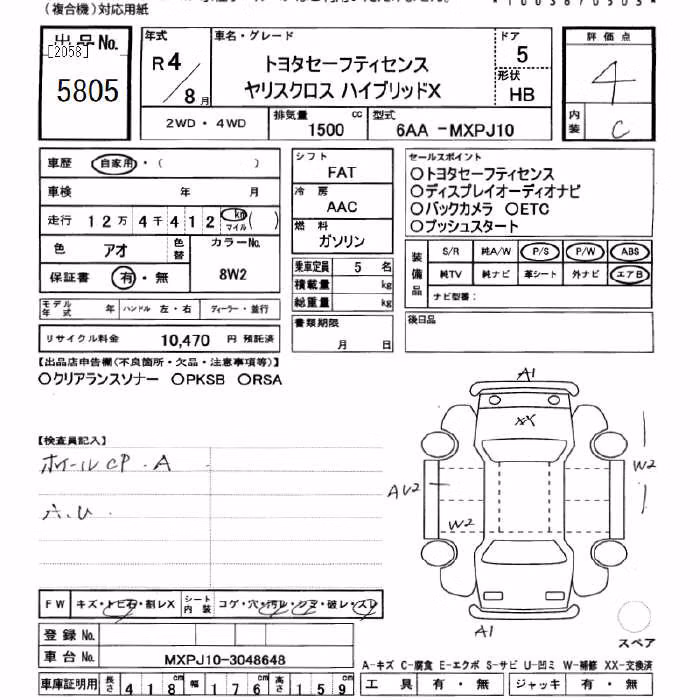 (複合機)対応用紙
出品No.
[2058]
5805
年式
R4
8月
車名・グレード
トヨタセーフティセンス
ヤリスクロス ハイブリッドX
ドア
5
形状
HB
評価点
4
内装
C
2WD・4WD
排気量
1500 cc
型式
6AA -MXPJ10
車歴 自家用・( )
車検 年 月
走行 12万4千412 km マイル ( )
色 アオ
色替
カラーNo.
8W2
保証書 有・無
モデル年式 年
ハンドル 左・右
ディーラー・並行
リサイクル料金 10,470 円 預託済
シフト
FAT
冷房
AAC
燃料
ガソリン
乗車定員 5 名
積載量 kg
総重量 kg
書類期限
月 日
セールスポイント
○トヨタセーフティセンス
○ディスプレイオーディオナビ
○バックカメラ ○ETC
○プッシュスタート
装備品
S/R 純A/W P/S P/W ABS
純TV 純ナビ 革シート 外ナビ エアB
ナビ型番:
後日品
【出品店申告欄(不良箇所・欠品・注意事項等)】
○クリアランスソナー ○PKSB ○RSA
【検査員記入】
ホイールCP.A
A.U.
A1
XX
W2
AU2
W2
A1
スペア
FW キズ・トビ石・割レX
シート内装 コゲ・穴・汚レ・シミ・破レ・スレ
登録No.
車台No. MXPJ10-3048648
車庫証明用 長さ 418cm 幅 176cm 高さ 159cm
A-キズ C-腐食 E-エクボ S-サビ U-凹ミ W-補修 XX-交換済
工具 有・無 ジャッキ 有・無